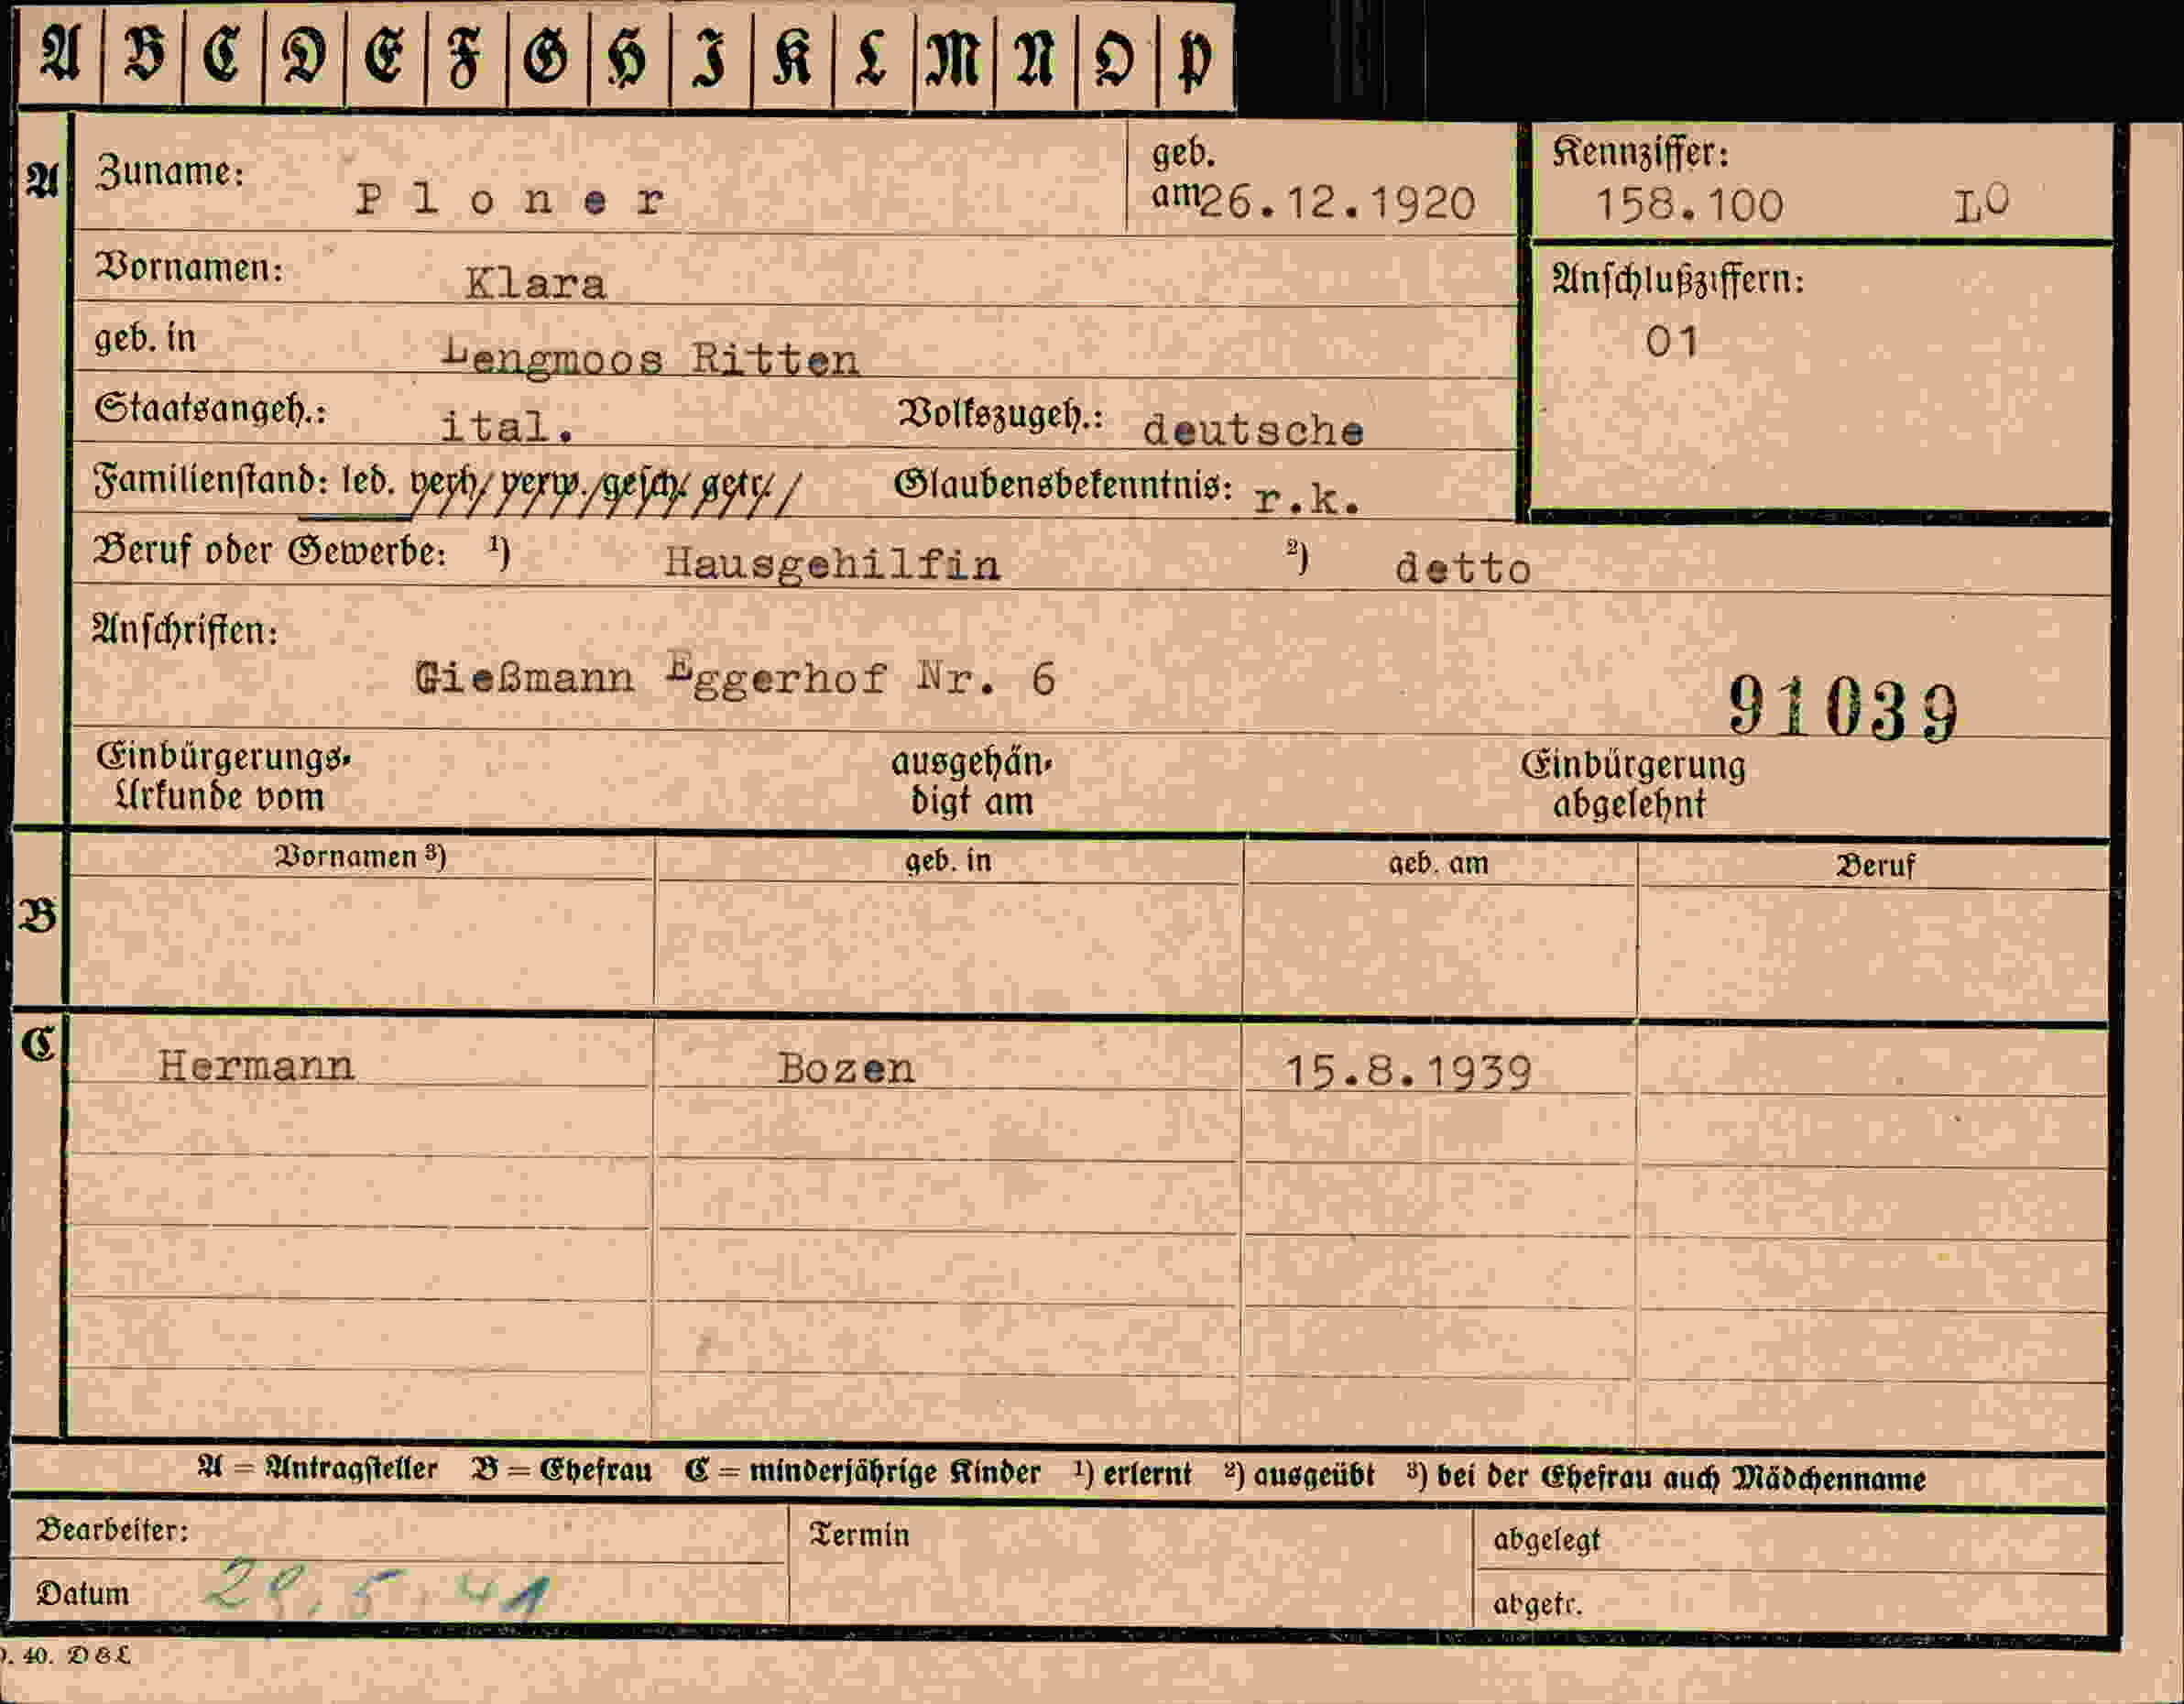 A B C D E F G H I K L M N O P
A Zuname: Ploner geb. am 26.12.1920 Kennziffer: 158.100 LO
Vornamen: Klara Anschlußziffern: 01
geb. in Lengmoos Ritten
Staatsangeh.: ital. Volkszugeh.: deutsche
Familienstand: led. verh. verw. gesch. getr. Glaubensbekenntnis: r.k.
Beruf oder Gewerbe: ¹) Hausgehilfin ²) detto
Anschriften:
Gießmann Eggerhof Nr. 6
91039
Einbürgerungs-Urkunde vom ausgehändigt am Einbürgerung abgelehnt
Vornamen ³) geb. in geb. am Beruf
B
C Hermann Bozen 15.8.1939
A = Antragsteller B = Ehefrau C = minderjährige Kinder ¹) erlernt ²) ausgeübt ³) bei der Ehefrau auch Mädchenname
Bearbeiter: Termin abgelegt
Datum 29.5.41 abgetr.
40. D&L